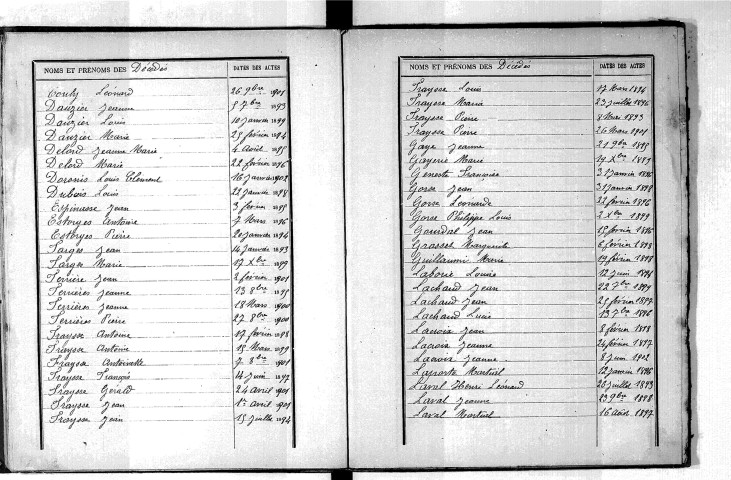 NOMS ET PRÉNOMS DES Décédés DATES DES ACTES
Couty Léonard 26 9bre 1901
Dauzier Jeanne 5 7bre 1893
Dauzier Louis 10 Janvier 1899
Dauzier Marie 25 février 1894
Delord Jeanne Marie 4 Avril 1895
Delord Marie 22 février 1896
Louis Clément 16 Janvier 1902
Dubois Louis 22 Janvier 1898
Espinasse Jean 3 février 1895
Estorges Antoine 7 Mars 1896
Estorges Pierre 20 Janvier 1894
Farges Jean 14 Janvier 1893
Farges Marie 17 Xbre 1899
Ferrière Jean 2 février 1901
Ferrières Jeanne 13 8bre 1895
Ferrières Jeanne 18 Mars 1900
Ferrières Pierre 27 8bre 1900
Fraysse Antoine 17 février 1898
Fraysse Antoine 15 Mars 1899
Fraysse Antoinette 7 8bre 1901
Fraysse François 14 Juin 1897
Fraysse Gérald 24 Avril 1901
Fraysse Jean 1er Avril 1901
Fraysse Jean 15 Juillet 1894
NOMS ET PRÉNOMS DES Décédés DATES DES ACTES
Fraysse Louis 17 Mars 1894
Fraysse Marie 23 Juillet 1896
Fraysse Pierre 8 Mars 1893
Fraysse Pierre 26 Mars 1901
Gaye Jeanne 21 9bre 1895
Gayerie Marie 14 Xbre 1893
Geneste Françoise 31 Janvier 1896
Gorse Jean 31 Janvier 1898
Gorse Léonarde 22 février 1896
Gorse Philippe Louis 2 Xbre 1899
Gourdal Jean 15 février 1896
Grasset Marguerite 6 février 1898
Guillaumie Marie 19 février 1898
Laborie Louise 12 Juin 1896
Lachaud Jean 22 7bre 1899
Lachaud Jean 25 février 1897
Lachaud Lucie 13 7bre 1896
Lacroix Jean 8 février 1898
Lacroix Jeanne 24 février 1897
Lacroix Jeanne 8 Juin 1902
Laporte Martial 12 Janvier 1896
Laval Henri Léonard 20 Juillet 1893
Laval Jeanne 13 9bre 1898
Laval Martial 16 Août 1897